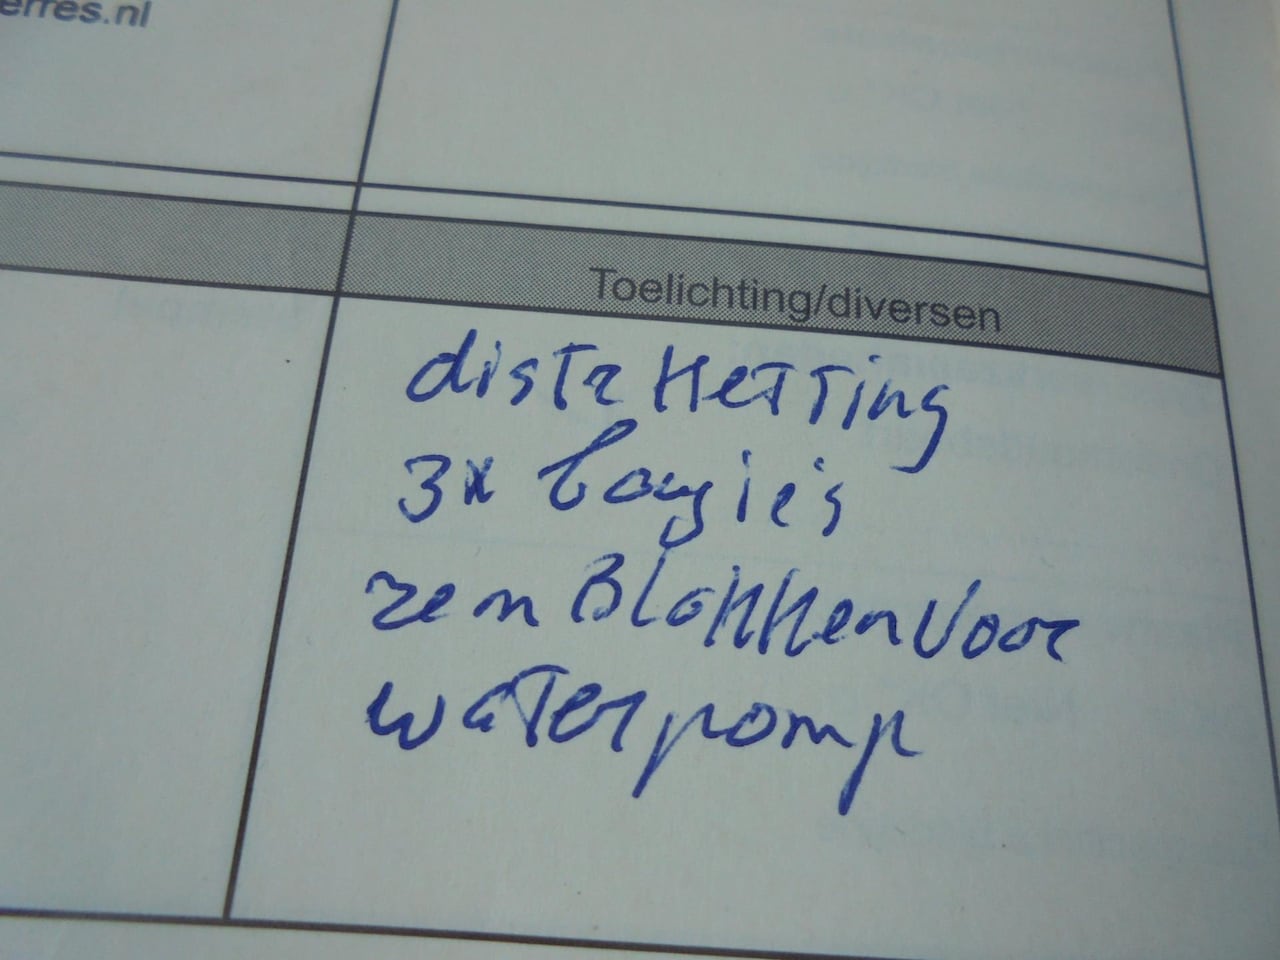 erres.nl
Toelichting/diversen
distr Ketting
3x bougie's
remBlokken voor
waterpomp